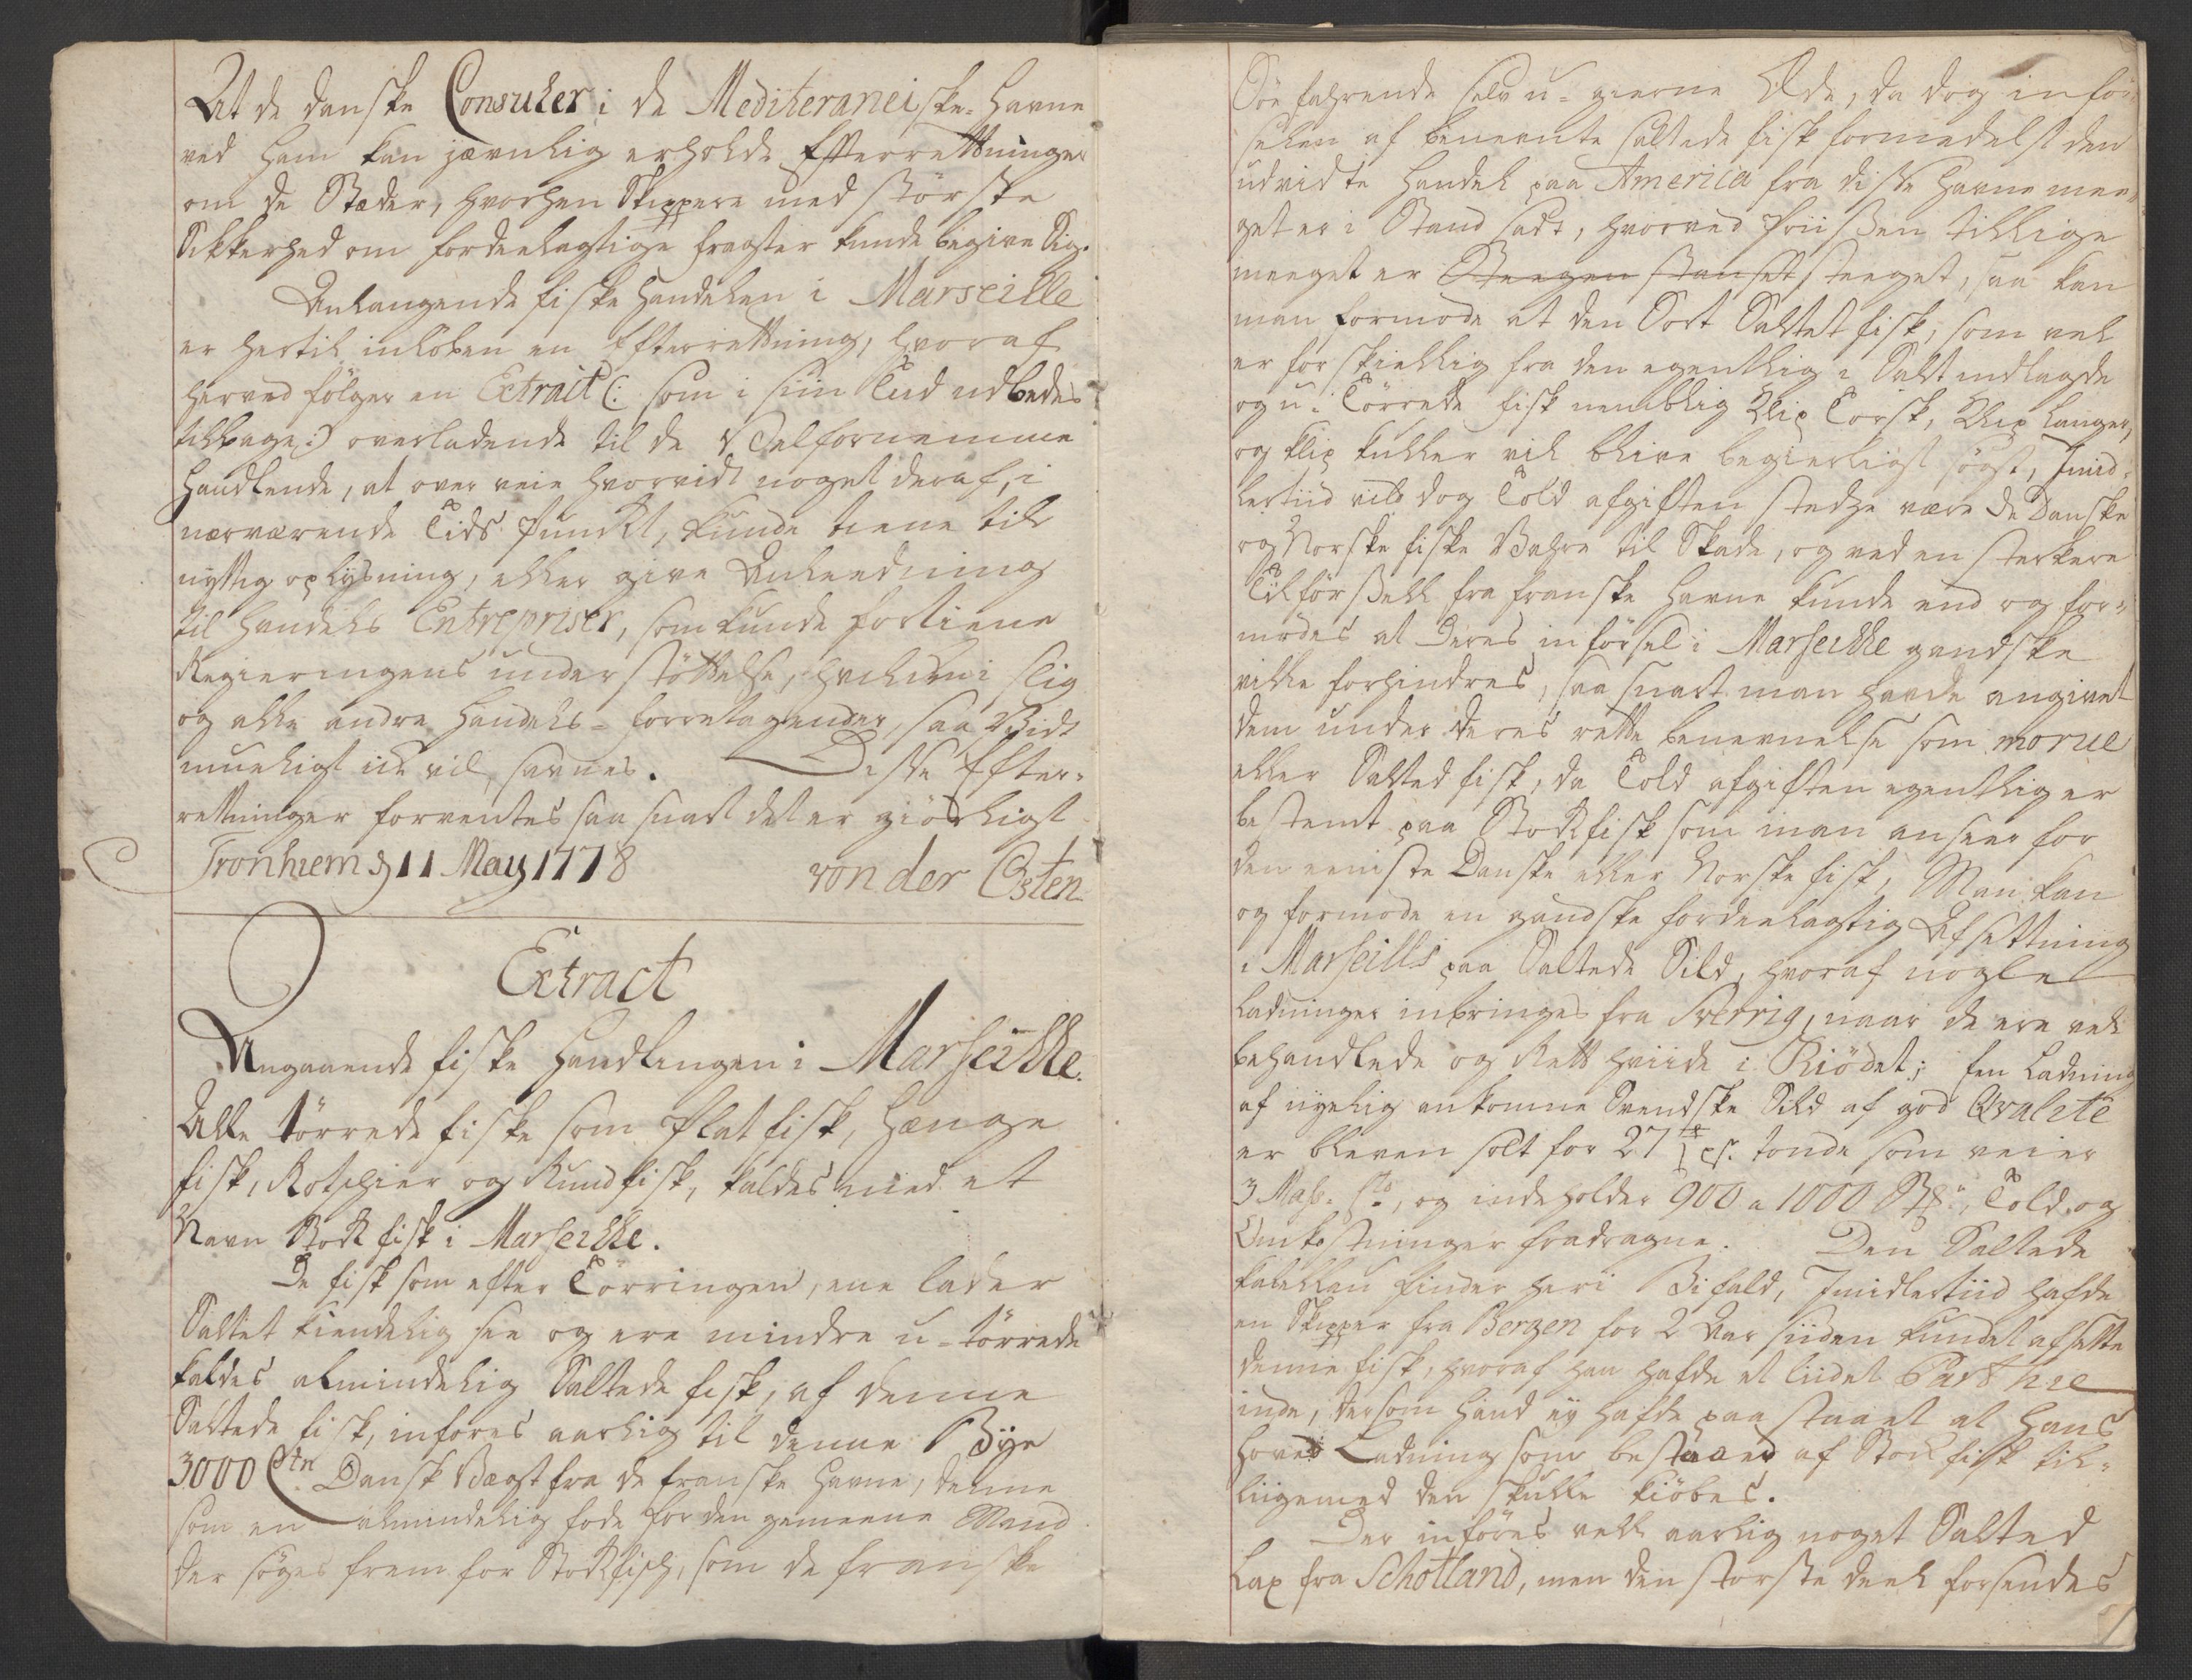 At de danske Consuler i de Mediteraneiske-Havne
ved ham kan jævnlig erholde Efterrettninger
om de Stæder, hvorhen Skippere med største
Sikkerhed om fordeelagtige fragter kunde begive Sig.
Anlangende fiske Handelen i Marseille
er hertil indløben en Efterrettning, hvoraf
herved følger en Extract (: som i siin Tiid udbedes
tilbage :) overladende til de Velfornemme
Handlende, at over veie hvorvidt noget deraf, i
nærværende Tids Punckt, kunde tiene till
nyttig oplysning, eller give Anleedning
til Handels Entrepriser, som kunde fortiene
Regieringens understøttelse, hvilken i slig
og alle andre Handels-forretagender, saa Vidt
mueligt icke vil savnes. Disse Efter-
rettninger forventes saa snart det er giørligt
Tronhiem d 11 May 1778 von der Osten
Extract
Angaaende fiske Handlingen i Marseille.
Alle tørrede fiske som Platfisk, Hænge
fisk, Rotschier og Rundfisk, kaldes med et
Navn Stockfisk i Marseille.
De fisk som efter Tørringen, ene lader
Saltet kiendelig see og ere mindre u-tørrede
kaldes almindelig Saltede fisk, af denne
Saltede fisk, inføres aarlig til denne Bye
3000 Ctn Dansk Vægt fra de franske Havne, denne
som en almindelig føde for den gemeene Mand
der søges frem for Stockfisch, som de franske
Søe fahrende selv u-gierne Æde, da dog inför
selen af benevnte saltede fisk formedelst den
udvidte Handel paa America fra disse Havne mee
get er i Stand sadt, hvorved Priisen tillige
meeget er Steegen stanset steeget, saa kan
man formode at den Sort Saltet fisk, som vel
er forskiellig fra den egentlig i Salt indlagde
og u-Törrede fisk nemblig Klip Torsk, Klip Langer,
og klip kuller vil blive begierligst søgt, Imid-
lertiid vil dog Told afgiften stedze være de Danske
og Norske fiske Vahre til Skade, og ved en sterkere
Tilførsell fra franske Havne kunde end og for-
modes at deres införsel i Marseille gandske
ville forhindres, saa snart man havde angivet
dem under deres rette benevnelse som morue
eller Salted fisk, da Told afgiften egentlig er
bestemt paa Stockfisk som man anseer for
den eeniste Danske eller Norske fisk, Man kan
og formode en gandske fordeelagtig Afsettning
i Marseille paa Saltede Sild, hvoraf nogle
Ladninger indbringes fra Sverrig, naar de ere vel
behandlede og Rett hviide i Kiödet; Een Ladning
af nyelig ankomne Svendske Sild af god Qvalité
er bleven solt for 27 pr. tønde som veier
3 Mass: , og indeholder 900 a 1000 Told og
Omkostninger fradragne. Den Saltede
Kabellau finder her i Bifald, Imidlertiid hafde
en Skipper fra Bergen for 2 Aar siiden kundet afsette
denne fisk, hvoraf han hafde et liidet Parthie
inde, dersom Hand ey hafde paa staaet at Hans
hoved Ladning som bestaaed af Stockfisk til-
ligemed den skulle kiöbes.
Der inføres vell aarlig noget Salted
Lax fra Schotland, men den störste deel forsendes